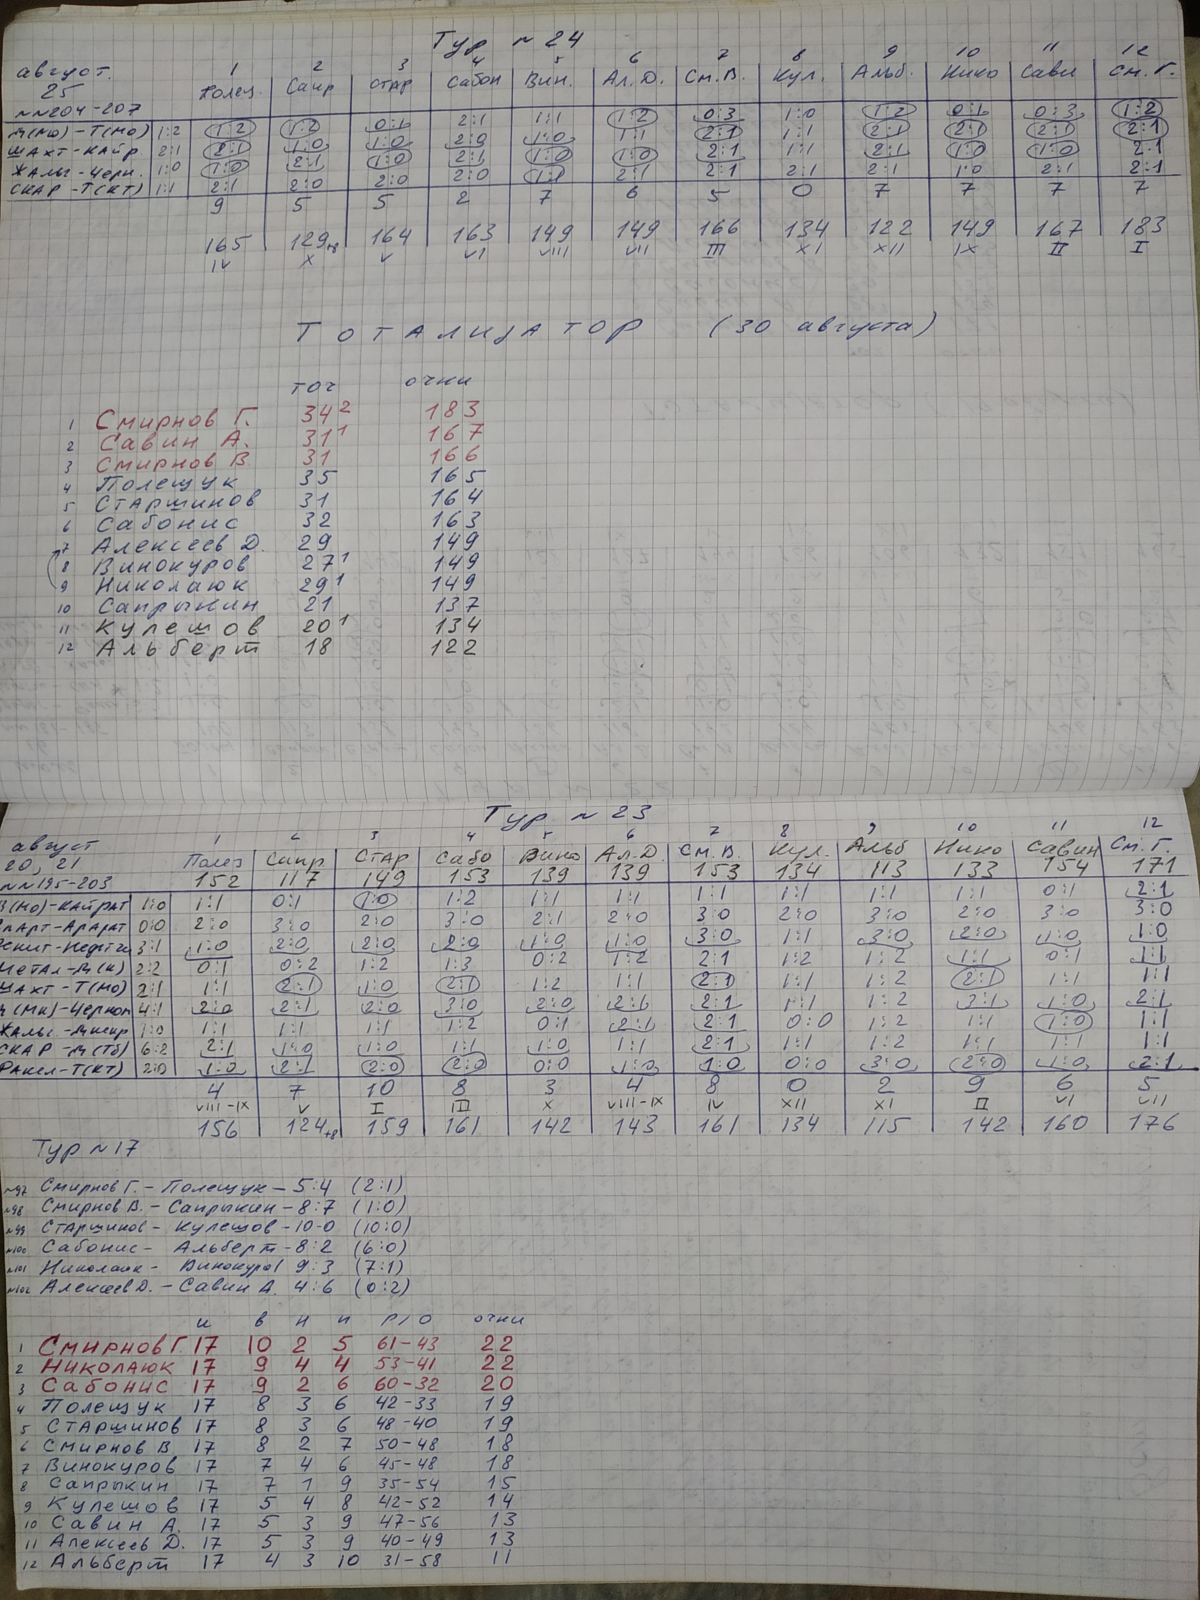 Тур №24
август.
25
№№204-207
1 2 3 4 5 6 7 8 9 10 11 12
Полещ. Сапр Стар Сабон Вин. Ал.Д. См.В. Кул. Альб. Нико Сави См.Г.
Д(Мо)-Т(Мо) 1:2 1:2 1:2 0:1 2:1 1:1 1:2 0:3 1:0 1:2 0:1 0:3 1:2
Шахт-Кайр. 2:1 2:1 1:0 1:0 2:0 1:0 1:1 2:1 1:1 2:1 2:1 2:1 2:1
Жальг-Черн. 1:0 1:0 2:1 1:0 2:1 1:0 1:0 2:1 1:1 2:1 1:0 1:0 2:1
СКАР-Т(КТ) 1:1 2:1 2:0 2:0 2:0 1:1 2:1 2:1 2:1 2:1 1:0 2:1 2:1
9 5 5 2 7 6 5 0 7 7 7 7
165 129+8 164 163 149 149 166 134 122 149 167 183
IV X V VI VIII VII III XI XII IX II I
Тотализатор (30 августа)
точ очки
1 Смирнов Г. 34² 183
2 Савин А. 31¹ 167
3 Смирнов В. 31 166
4 Полещук 35 165
5 Старшинов 31 164
6 Сабонис 32 163
7 Алексеев Д. 29 149
8 Винокуров 27¹ 149
9 Николаюк 29¹ 149
10 Сапрыкин 21 137
11 Кулешов 20¹ 134
12 Альберт 18 122
Тур №23
август
20, 21
№№195-203
1 2 3 4 5 6 7 8 9 10 11 12
Полещ Сапр Стар Сабо Вино Ал.Д. См.В Кул. Альб Нико Савин См.Г.
152 117 149 153 139 139 153 134 113 133 154 171
Д(Мо)-Кайрат 1:0 1:1 0:1 1:0 1:2 1:1 1:1 1:1 1:1 1:1 1:1 0:1 2:1
Спарт-Арарат 0:0 2:0 3:0 2:0 3:0 2:1 2:0 3:0 2:0 3:0 2:0 3:0 3:0
Зенит-Нефтчи 3:1 1:0 2:0 2:0 2:0 1:0 1:0 3:0 1:1 3:0 2:0 1:0 1:0
Метал-Д(К) 2:2 0:1 0:2 1:2 1:3 0:2 1:2 2:1 1:2 1:2 1:1 0:1 1:1
Шахт-Т(Мо) 2:1 1:1 2:1 1:0 2:1 1:2 1:1 2:1 1:1 1:2 2:1 1:1 1:1
Д(Мн)-Черном 4:1 2:0 2:1 2:0 3:0 2:0 2:1 2:1 1:1 1:2 3:1 1:0 2:1
Жальг-Днепр 1:0 1:1 1:1 1:1 1:2 0:1 2:1 2:1 0:0 1:2 1:1 1:0 1:1
СКАР-Д(Тб) 6:2 2:1 1:0 1:0 1:1 1:0 1:1 2:1 1:1 1:2 1:1 1:1 1:1
Факел-Т(КТ) 2:0 1:0 2:1 2:0 2:0 0:0 1:0 1:0 0:0 3:0 2:0 1:0 2:1
4 7 10 8 3 4 8 0 2 9 6 5
VIII-IX V I III X VIII-IX IV XII XI II VI VII
156 124+8 159 161 142 143 161 134 115 142 160 176
Тур №17
№97 Смирнов Г. - Полещук - 5:4 (2:1)
№98 Смирнов В. - Сапрыкин - 8:7 (1:0)
№99 Старшинов - Кулешов - 10-0 (10:0)
№100 Сабонис - Альберт - 8:2 (6:0)
№101 Николаюк - Винокуров 9:3 (7:1)
№102 Алексеев Д. - Савин А. 4:6 (0:2)
и в н п р/о очки
1 Смирнов Г. 17 10 2 5 61-43 22
2 Николаюк 17 9 4 4 53-41 22
3 Сабонис 17 9 2 6 60-32 20
4 Полещук 17 8 3 6 42-33 19
5 Старшинов 17 8 3 6 48-40 19
6 Смирнов В 17 8 2 7 50-48 18
7 Винокуров 17 7 4 6 45-48 18
8 Сапрыкин 17 7 1 9 35-54 15
9 Кулешов 17 5 4 8 42-52 14
10 Савин А. 17 5 3 9 47-56 13
11 Алексеев Д. 17 5 3 9 40-49 13
12 Альберт 17 4 3 10 31-58 11